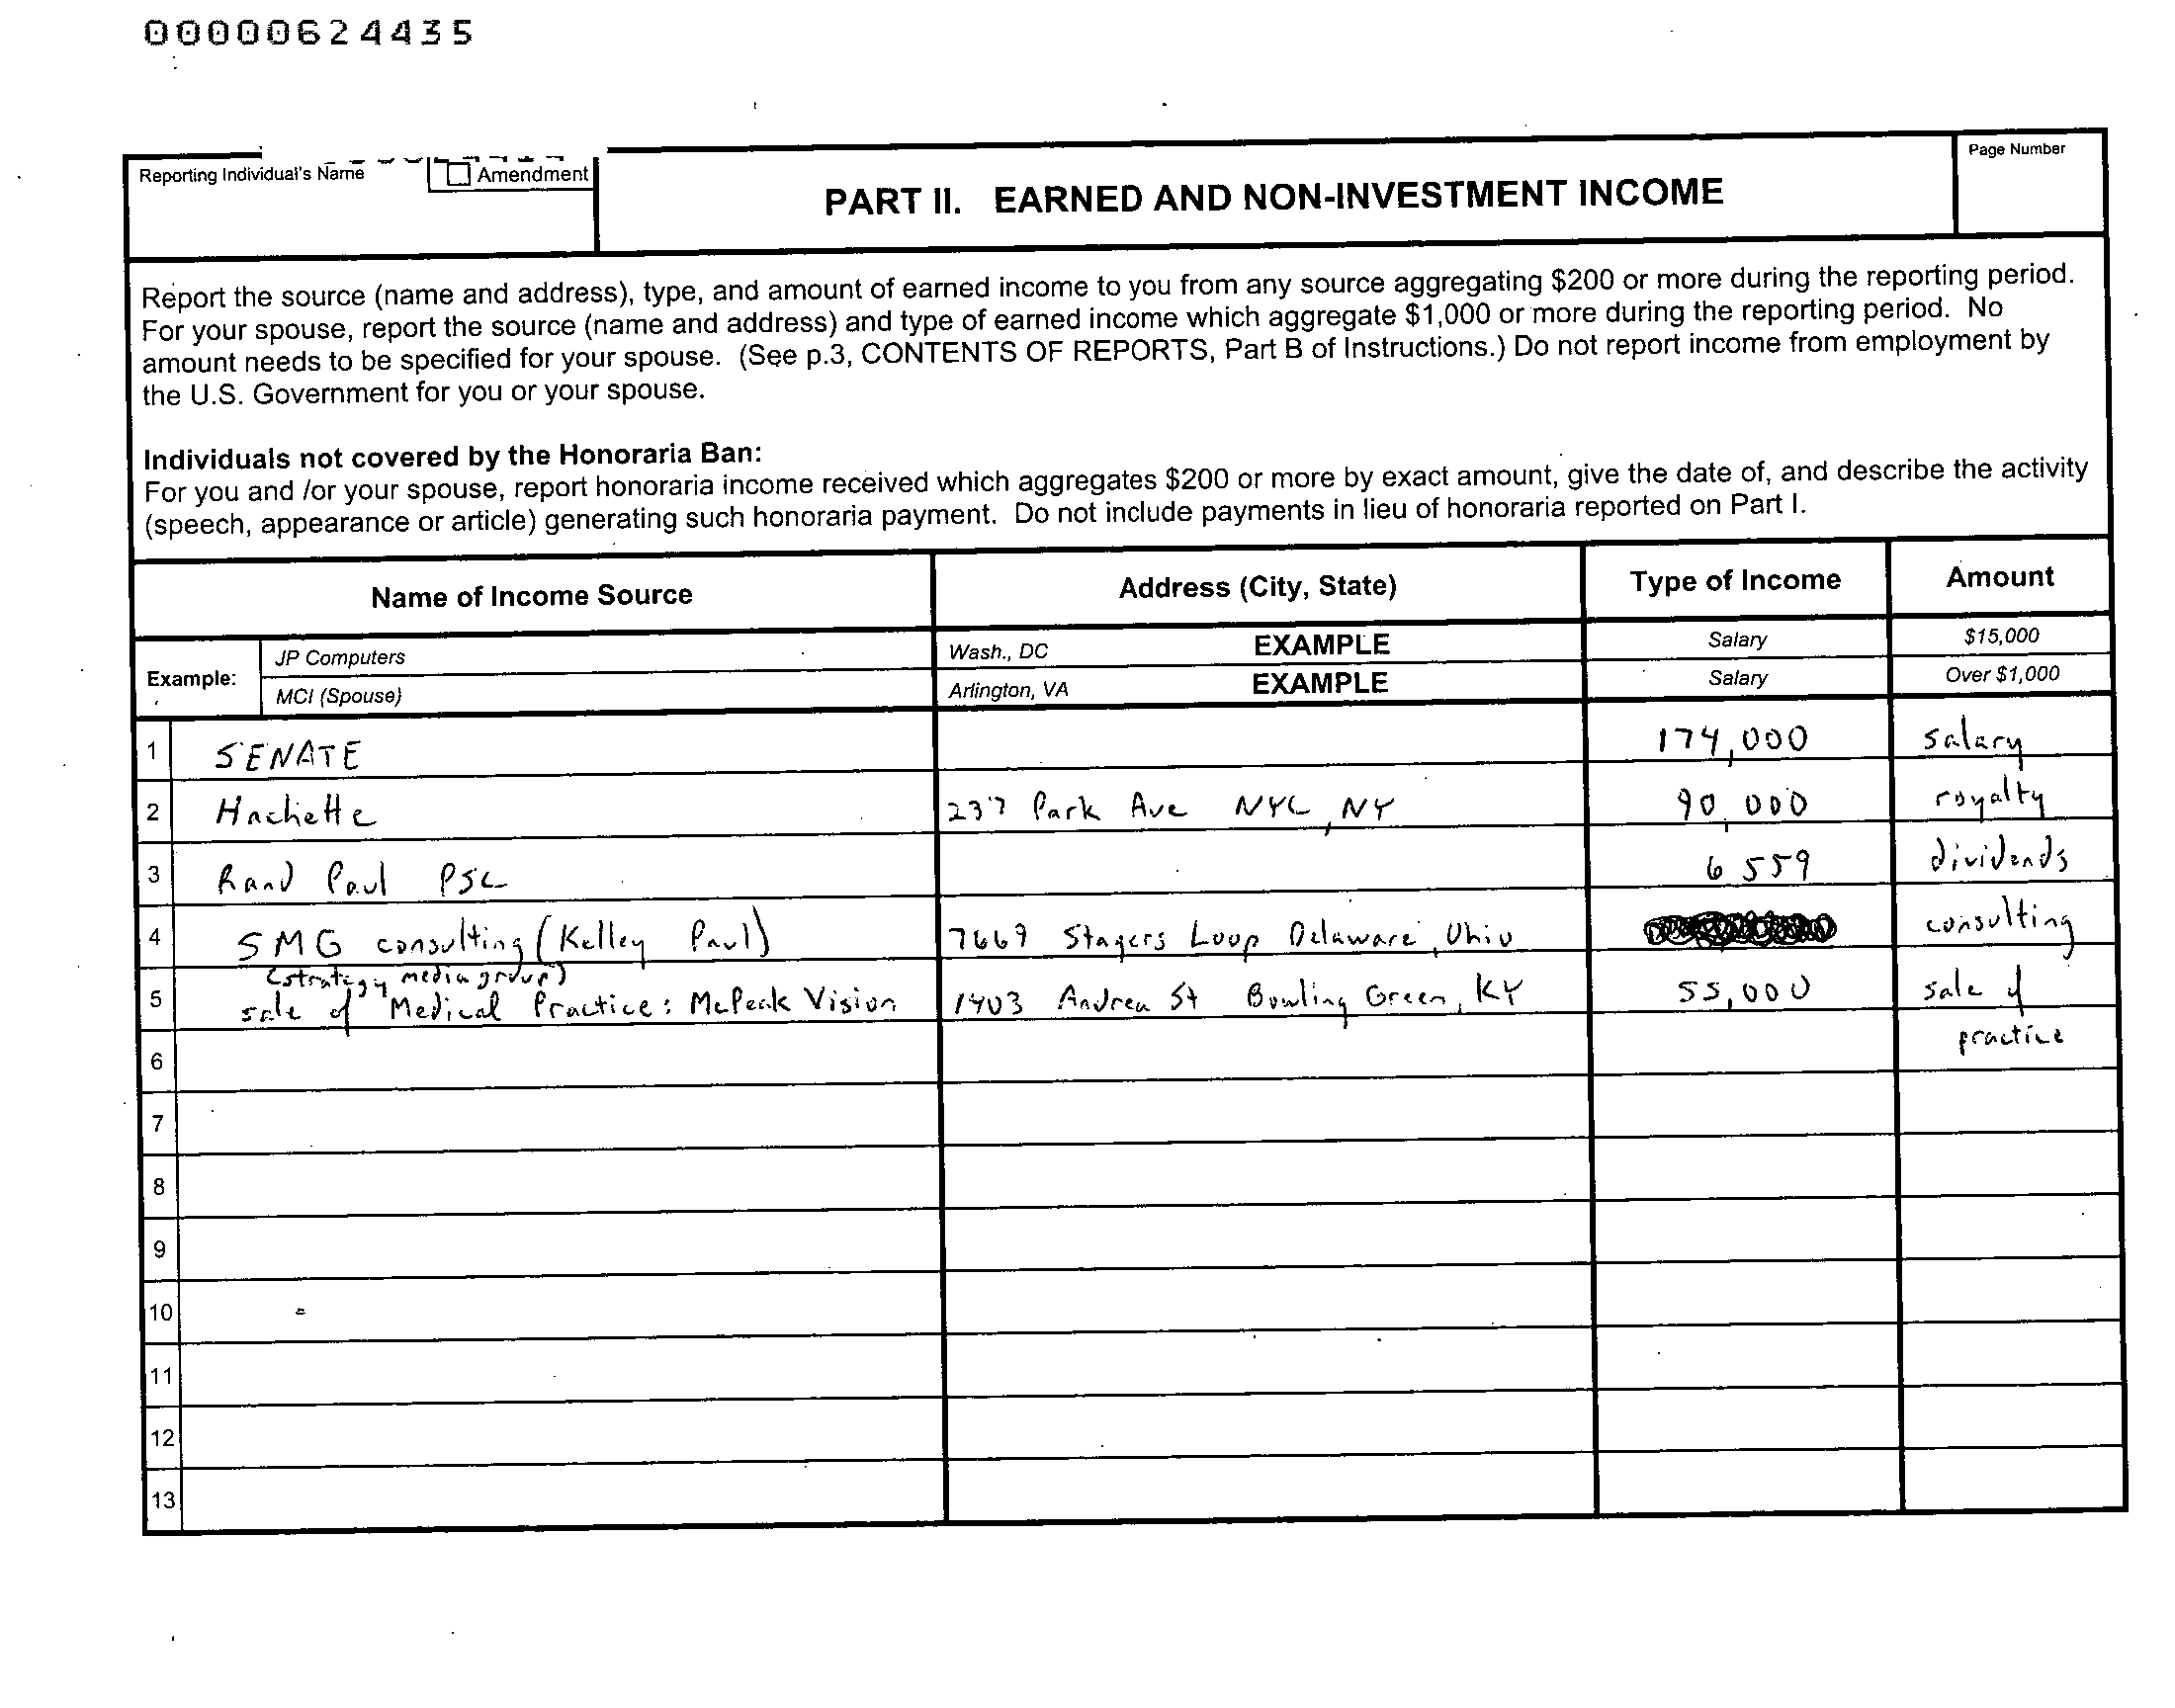 00000624435
Reporting Individual's Name
Amendment
PART II. EARNED AND NON-INVESTMENT INCOME
Page Number
Report the source (name and address), type, and amount of earned income to you from any source aggregating $200 or more during the reporting period.
For your spouse, report the source (name and address) and type of earned income which aggregate $1,000 or more during the reporting period. No
amount needs to be specified for your spouse. (See p.3, CONTENTS OF REPORTS, Part B of Instructions.) Do not report income from employment by
the U.S. Government for you or your spouse.
Individuals not covered by the Honoraria Ban:
For you and /or your spouse, report honoraria income received which aggregates $200 or more by exact amount, give the date of, and describe the activity
(speech, appearance or article) generating such honoraria payment. Do not include payments in lieu of honoraria reported on Part I.
Name of Income Source Address (City, State) Type of Income Amount
Example:
JP Computers Wash., DC EXAMPLE Salary $15,000
MCI (Spouse) Arlington, VA EXAMPLE Salary Over $1,000
1 SENATE 174,000 salary
2 Hachette 237 Park Ave NYC, NY 90,000 royalty
3 Rand Paul PSC 6 559 dividends
4 SMG consulting (Kelley Paul) 7669 Stagers Loop Delaware, Ohio consulting
(strategy media group)
5 sale of Medical Practice: McPeak Vision 1403 Andrea St Bowling Green, KY 55,000 sale of
practice
6
7
8
9
10
11
12
13